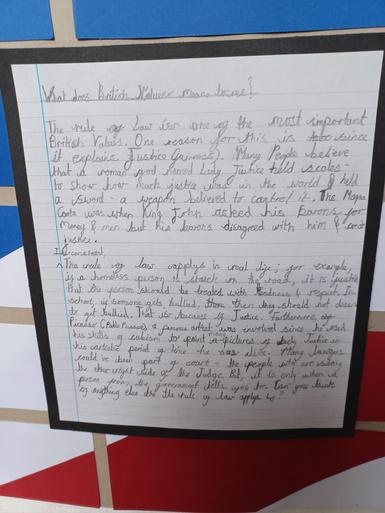 What does British Values mean to me?
The rule of law is one of the most important
British Values. One reason for this is since
it explains Justice (fairness). Many People believe
that a woman god named Lady Justice held scales
to show how much justice was in the world & held
a sword - a weapon believed to control it. The Magna
Carta was when King John asked his Barons for
Money & men but his barons disagreed with him &
justice.
The rule of law applys in real life; for example,
if a homeless person is on the road, it is
that the person should be treated with kindness & respect. In
school, if someone gets bullied, then they should not
get bullied. That is because of Justice. Furthermore,
Picasso (Pablo Picasso), a famous artist was involved since he used
his skills of cubism to paint pictures of Lady Justice in
his artistic period of time he was alive. Many lawyers
could've been part of court - the people who are
the right side of the Judge. But, it is only when a
person from the government tells you so. Can you think
of anything else the rule of law applys to?